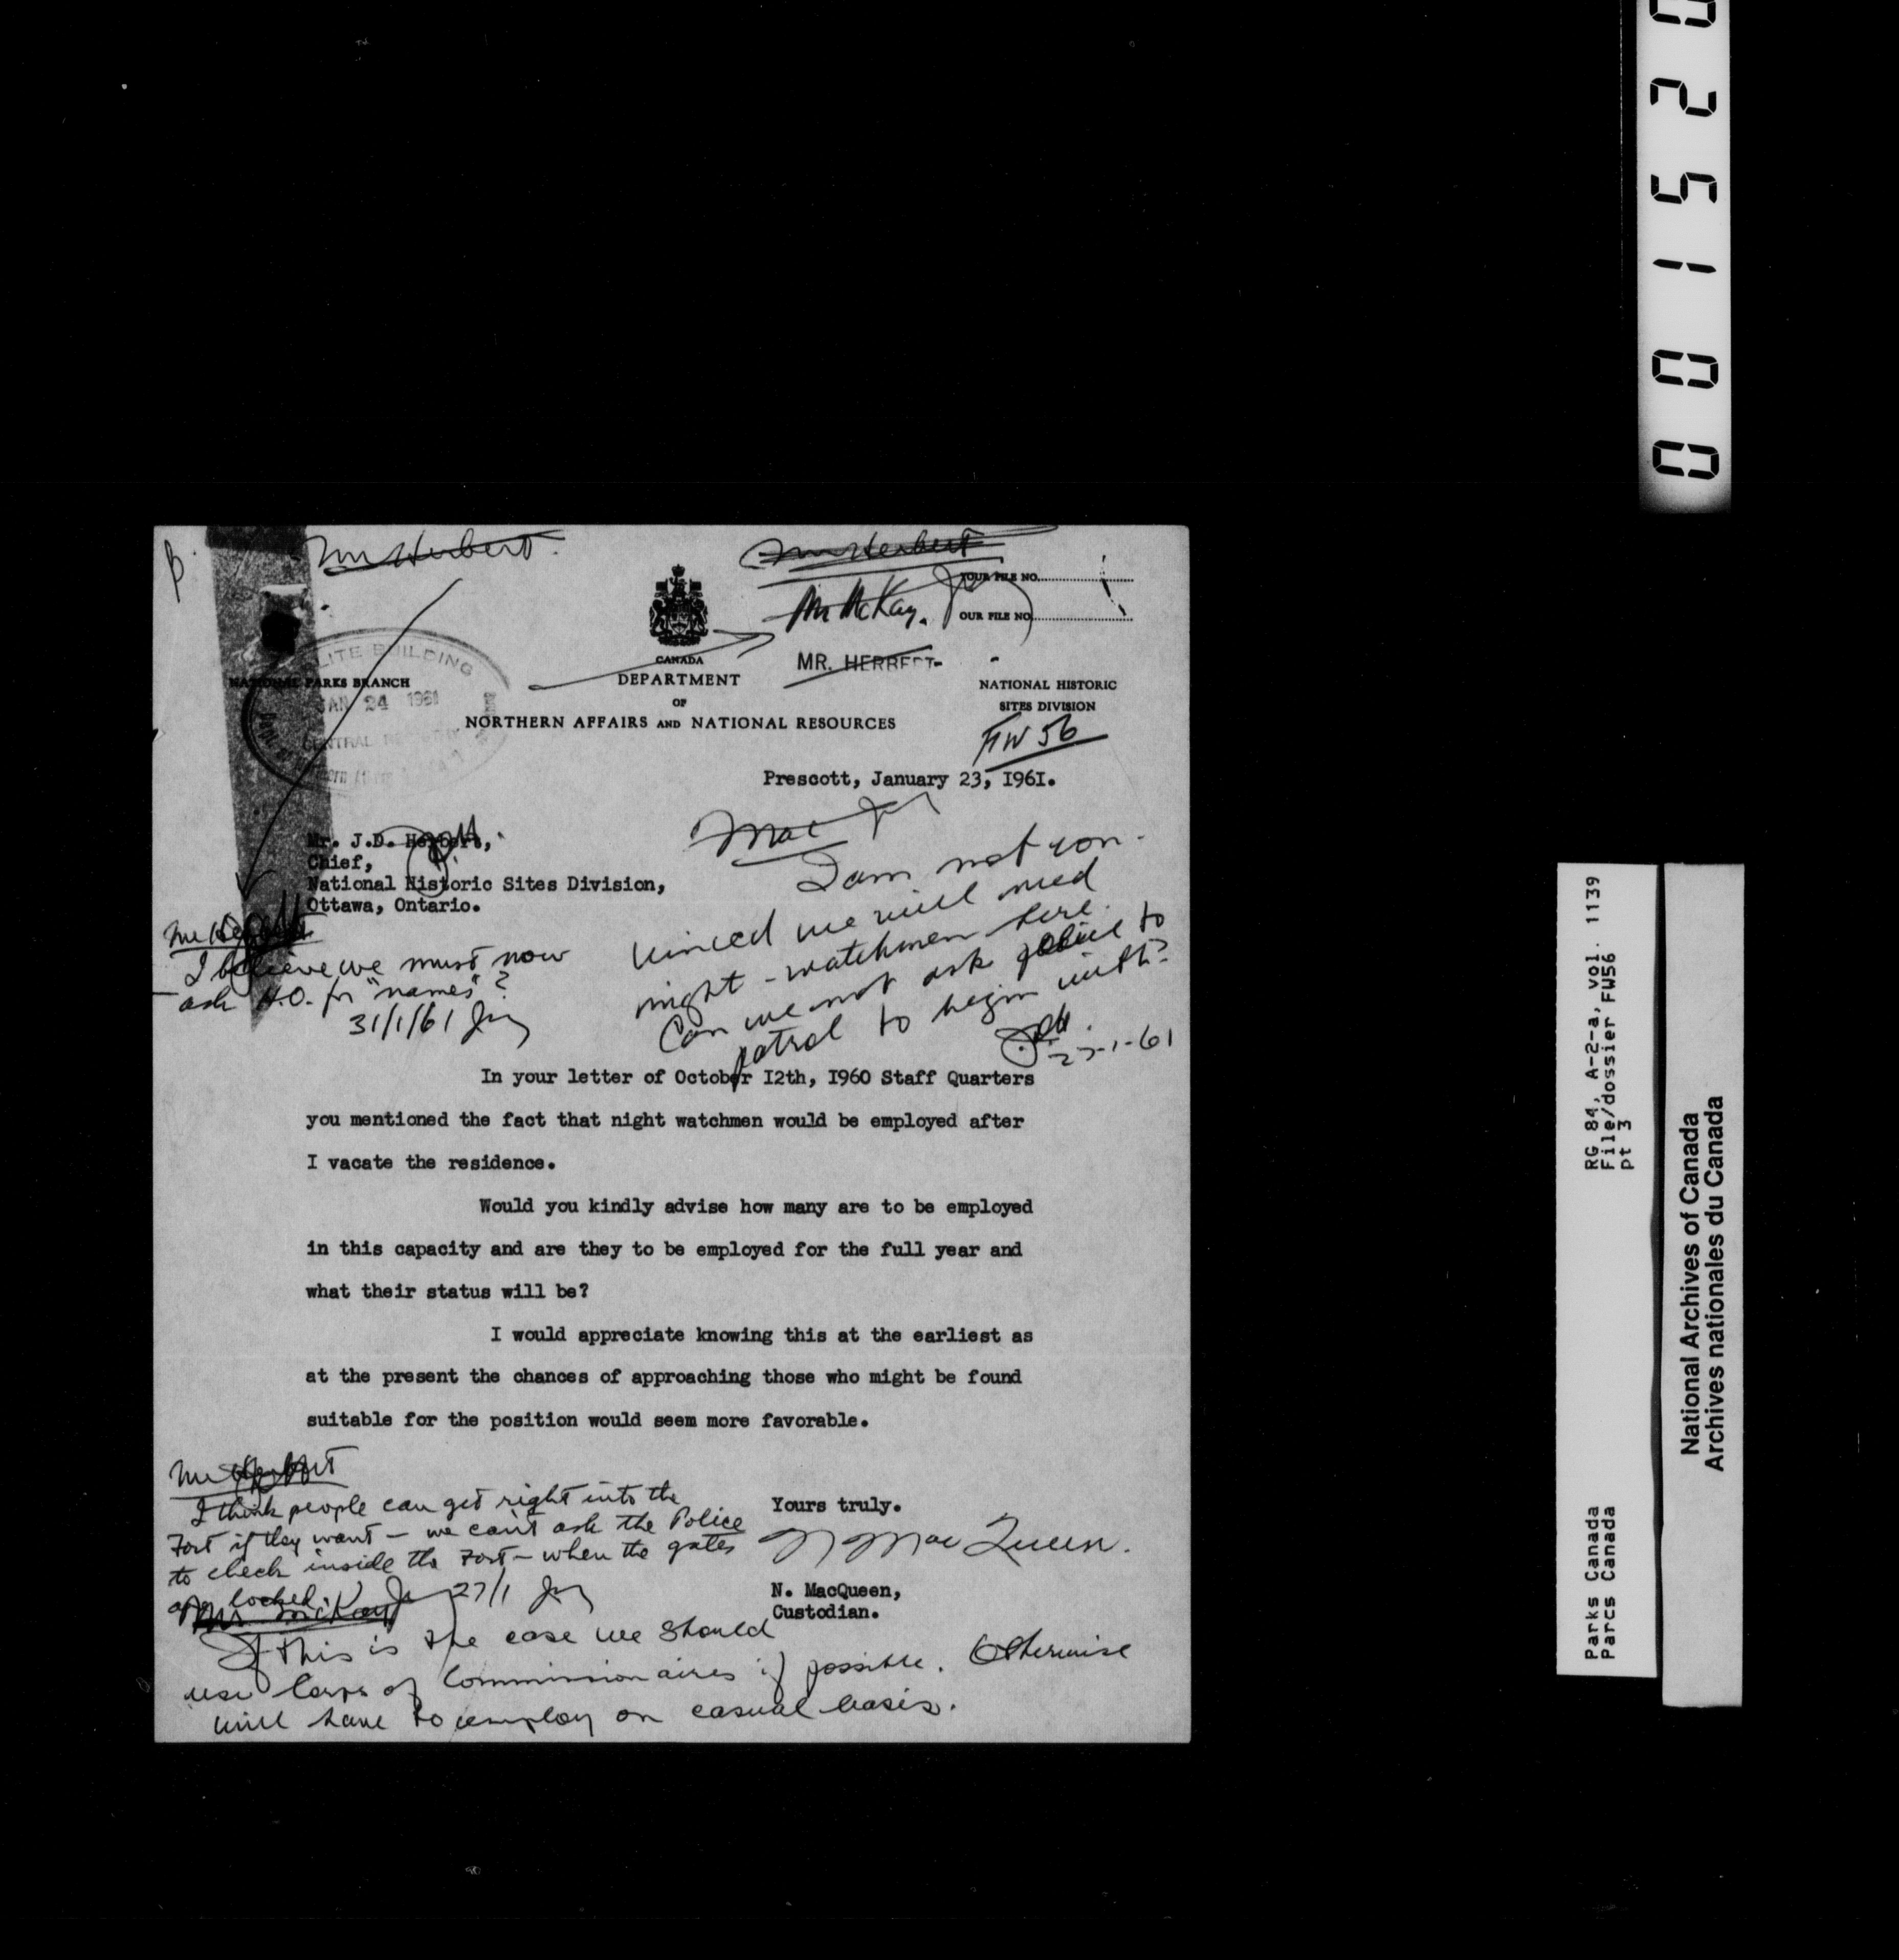 001520
Mr Herbert.
Mr Herbert
Mr McKay.
YOUR FILE NO.
OUR FILE NO.
MR. HERBERT
CANADA
DEPARTMENT
OF
NORTHERN AFFAIRS AND NATIONAL RESOURCES
NATIONAL PARKS BRANCH
LITE BUILDING
JAN 24 1961
CENTRAL
NATIONAL HISTORIC
SITES DIVISION
FW 56
Prescott, January 23, 1961.
Mr. J.D. Herbert,
Chief,
National Historic Sites Division,
Ottawa, Ontario.
Mac
I am not con-
vinced we will need
night-watchmen here.
Can we not ask police to
patrol to begin with?
27-1-61
Mr Herbert
I believe we must now
ask H.O. for "names"?
31/1/61
In your letter of October 12th, 1960 Staff Quarters
you mentioned the fact that night watchmen would be employed after
I vacate the residence.
Would you kindly advise how many are to be employed
in this capacity and are they to be employed for the full year and
what their status will be?
I would appreciate knowing this at the earliest as
at the present the chances of approaching those who might be found
suitable for the position would seem more favorable.
Yours truly.
N MacQueen.
N. MacQueen,
Custodian.
Mr Herbert
I think people can get right into the
Fort if they want — we can't ask the Police
to check inside the Fort — when the gates
are locked. 27/1
Mr McKay
If this is the case we should
use Corps of Commissionaires if possible. Otherwise
will have to employ on casual basis.
RG 84, A-2-a, vol. 1139
File/dossier FW56
pt 3
Parks Canada
Parcs Canada
National Archives of Canada
Archives nationales du Canada